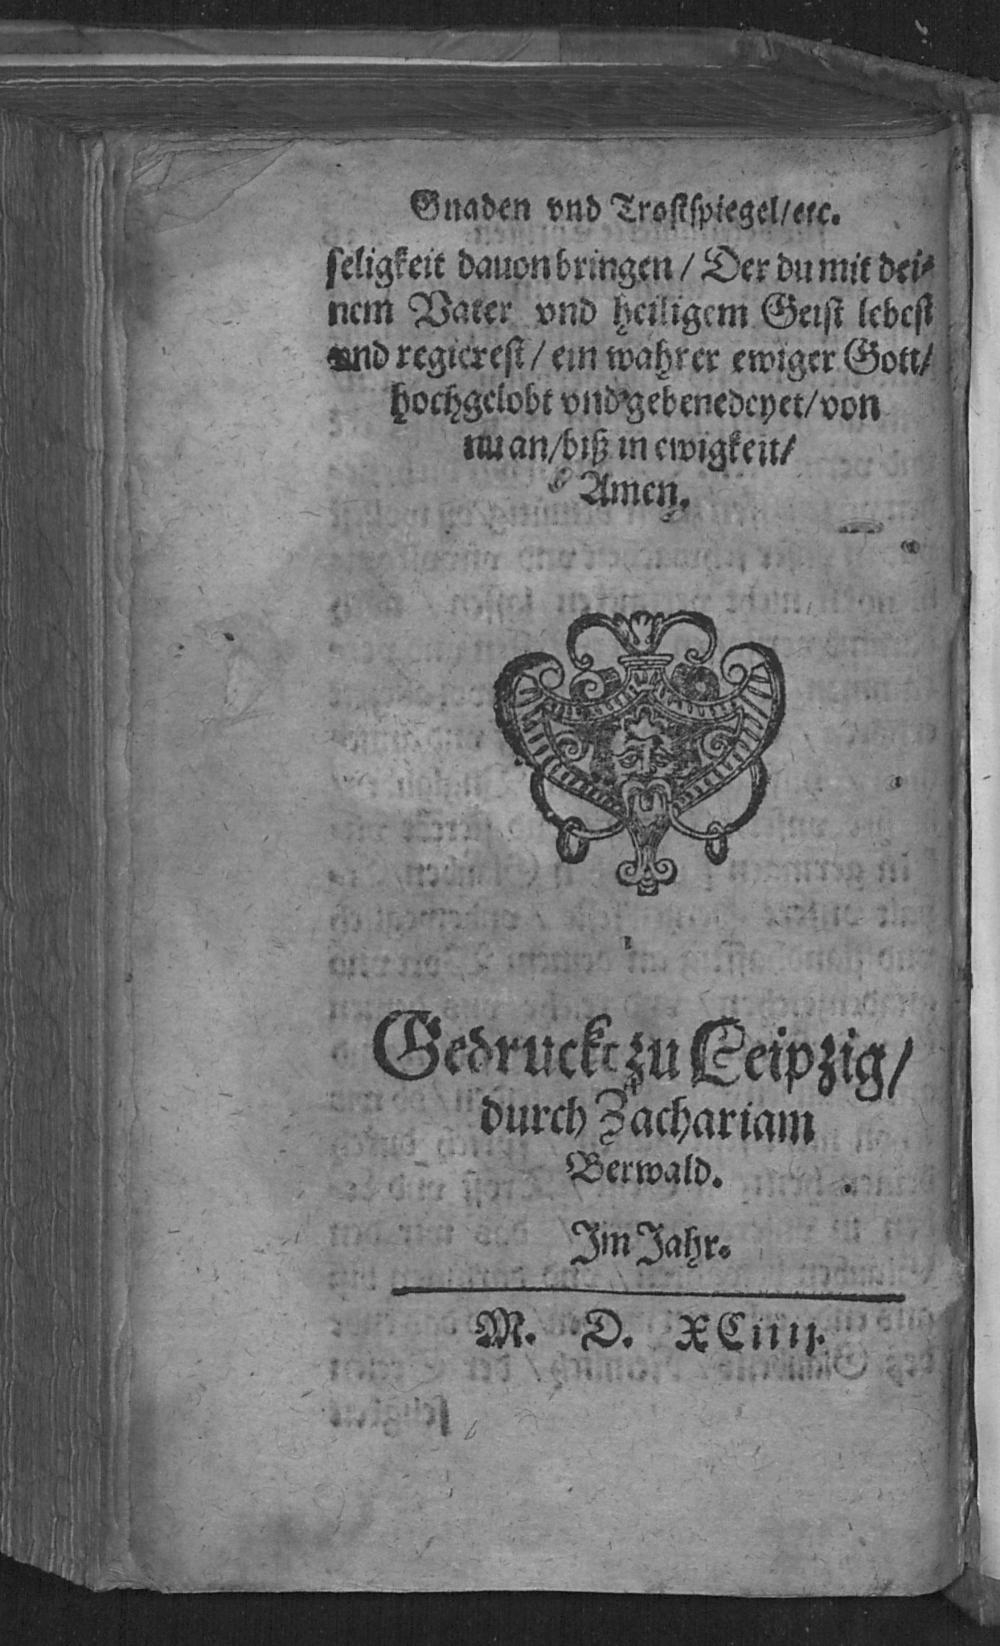 Gnaden vnd Trostspiegel/etc.
seligkeit dauon bringen/ Der du mit dei-
nem Vater vnd heiligem Geist lebest
vnd regierest/ ein wahrer ewiger Gott/
hochgelobt vnd gebenedeyet/von
nu an/biß in ewigkeit/
Amen.
Gedruckt zu Leipzig/
durch Zachariam
Berwald.
Im Jahr.
M. D. XCiiij.